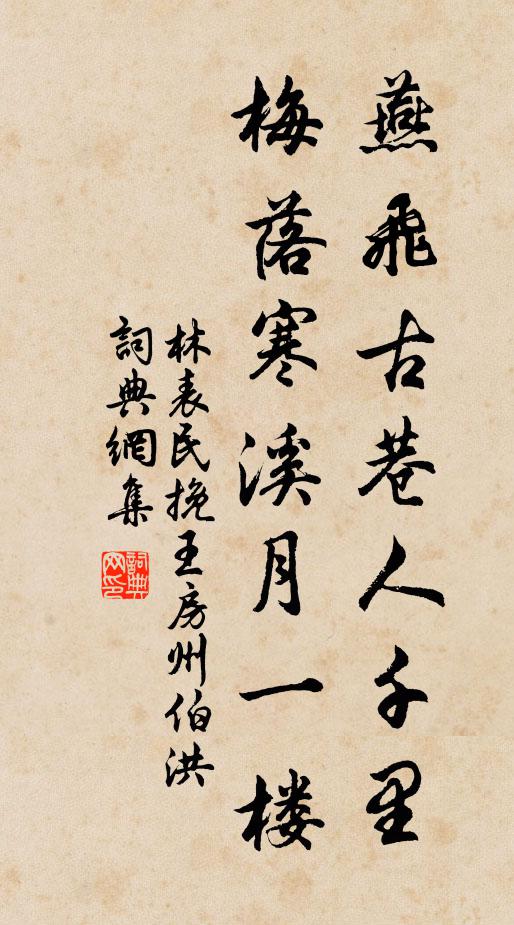 燕飛古巷人千里
梅落寒溪月一楼
林表民挽王房州伯洪
詞典網集
詞典網印